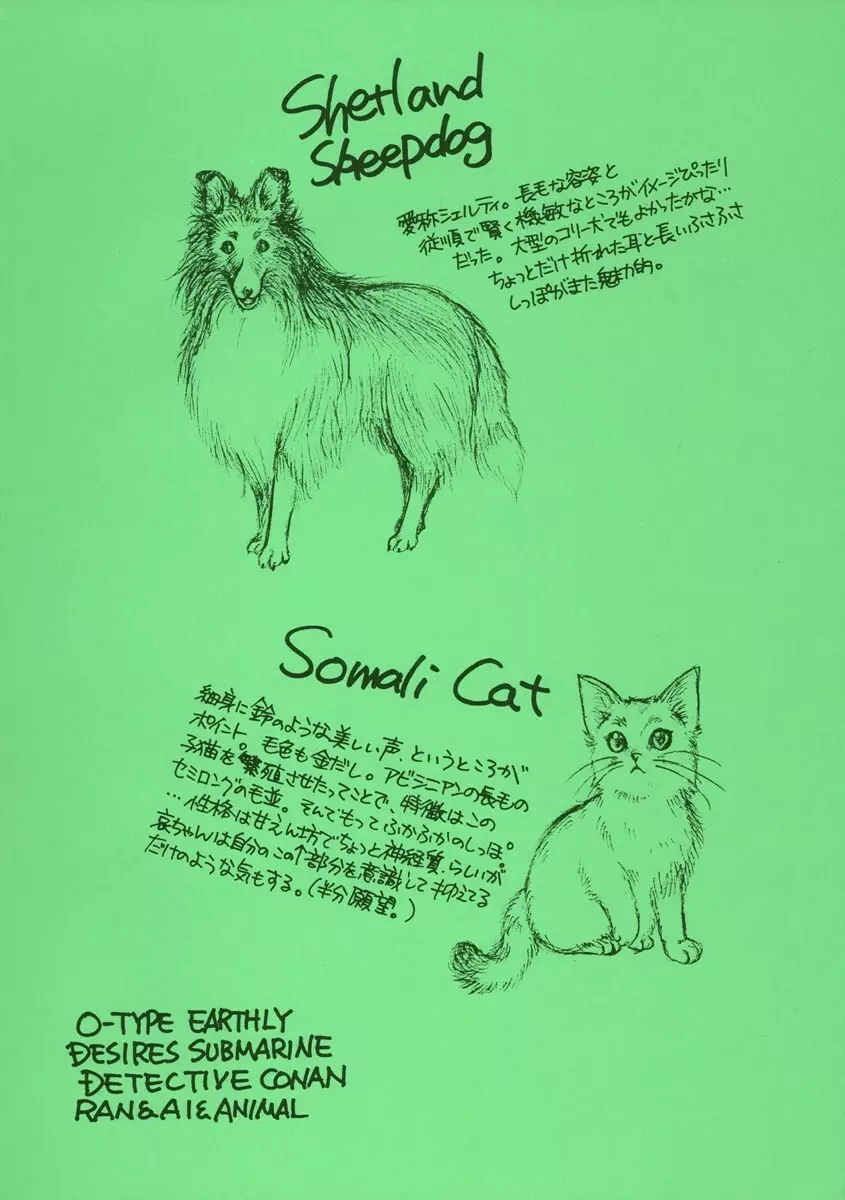 Shetland
Sheepdog
愛称シェルティ。長毛な容姿と
従順で賢く機敏なところがイメージぴったり
だった。大型のコリー犬でもよかったかな…
ちょっとだけ折れた耳と長いふさふさ
しっぽがまた魅力的。
Somali Cat
細身に鈴のような美しい声、というところが
ポイント。毛色も金だし。アビシニアンの長毛の
子猫を繁殖させたってことで、特徴はこの
セミロングの毛並。そんでもってふかふかのしっぽ。
…性格は甘えん坊でちょっと神経質、らしいが
哀ちゃんは自分のこの个部分を意識して抑えてる
だけのような気もする。(半分願望。)
O-TYPE EARTHLY
DESIRES SUBMARINE
DETECTIVE CONAN
RAN&AI&ANIMAL